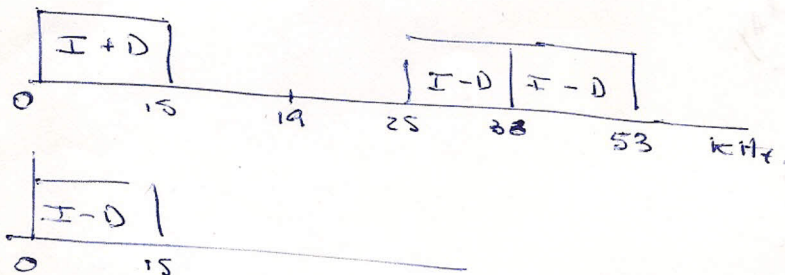 I + D
I - D I - D
0 15 19 25 38 53 KHz
I - D
0 15